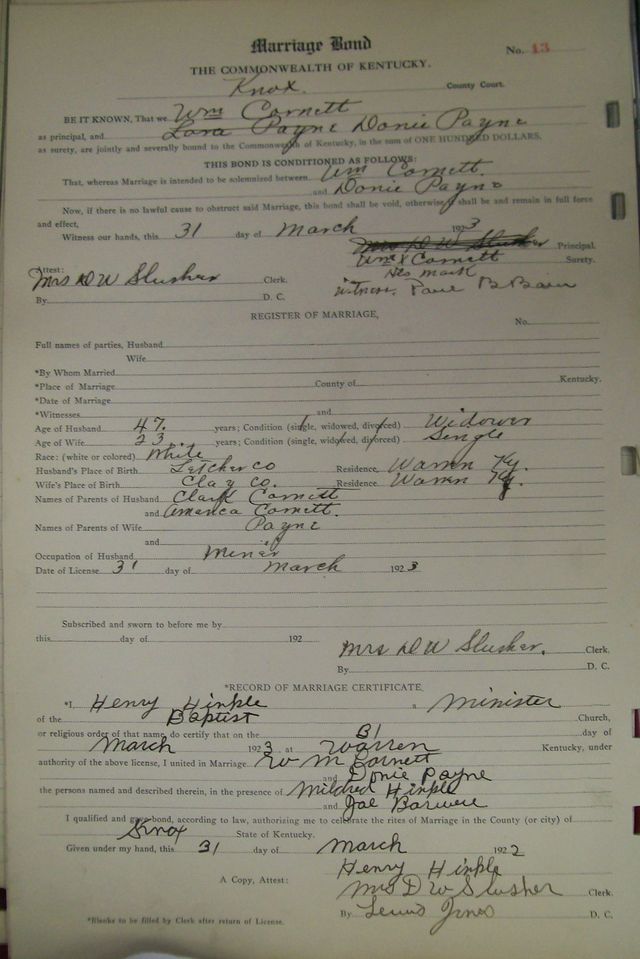 Marriage Bond
No. 13
THE COMMONWEALTH OF KENTUCKY.
Knox County Court.
BE IT KNOWN, That we Wm Cornett
as principal, and Payne Donie Payne
as surety, are jointly and severally bound to the Commonwealth of Kentucky, in the sum of ONE HUNDRED DOLLARS.
THIS BOND IS CONDITIONED AS FOLLOWS:
That, whereas Marriage is intended to be solemnized between Wm Cornett.
and Donie Payne
Now, if there is no lawful cause to obstruct said Marriage, this bond shall be void, otherwise it shall be and remain in full force
and effect,
Witness our hands, this 31 day of March 1923
Mrs D W Slusher Principal.
Wm X Cornett Surety.
His mark
Attest:
Mrs D W Slusher Clerk.
witness.
By D. C.
REGISTER OF MARRIAGE,
No.
Full names of parties, Husband
Wife
*By Whom Married
*Place of Marriage County of Kentucky.
*Date of Marriage
*Witnesses and
Age of Husband 47. years; Condition (single, widowed, divorced) Widower
Age of Wife 23 years; Condition (single, widowed, divorced) Single
Race: (white or colored) White
Husband's Place of Birth Letcher Co Residence, Warren Ky.
Wife's Place of Birth Clay Co. Residence Warren Ky.
Names of Parents of Husband Clark Cornett
and Amanca Cornett.
Names of Parents of Wife Payne
and
Occupation of Husband Miner
Date of License 31 day of March 1923
Subscribed and sworn to before me by
this day of 192
Mrs D W Slusher. Clerk.
By D. C.
*RECORD OF MARRIAGE CERTIFICATE
*I, Henry Hinkle a Minister
of the Baptist Church,
or religious order of that name, do certify that on the 31 day of
March 1923 at Warren Kentucky, under
authority of the above license, I united in Marriage W M Cornett
and Donie Payne
the persons named and described therein, in the presence of Mildred Hinkle
and Joe
I qualified and gave bond, according to law, authorizing me to celebrate the rites of Marriage in the County (or city) of
Knox State of Kentucky.
Given under my hand, this 31 day of March 1922
Henry Hinkle
A Copy, Attest: Mrs D W Slusher Clerk.
By Jones D. C.
*Blanks to be filled by Clerk after return of License.